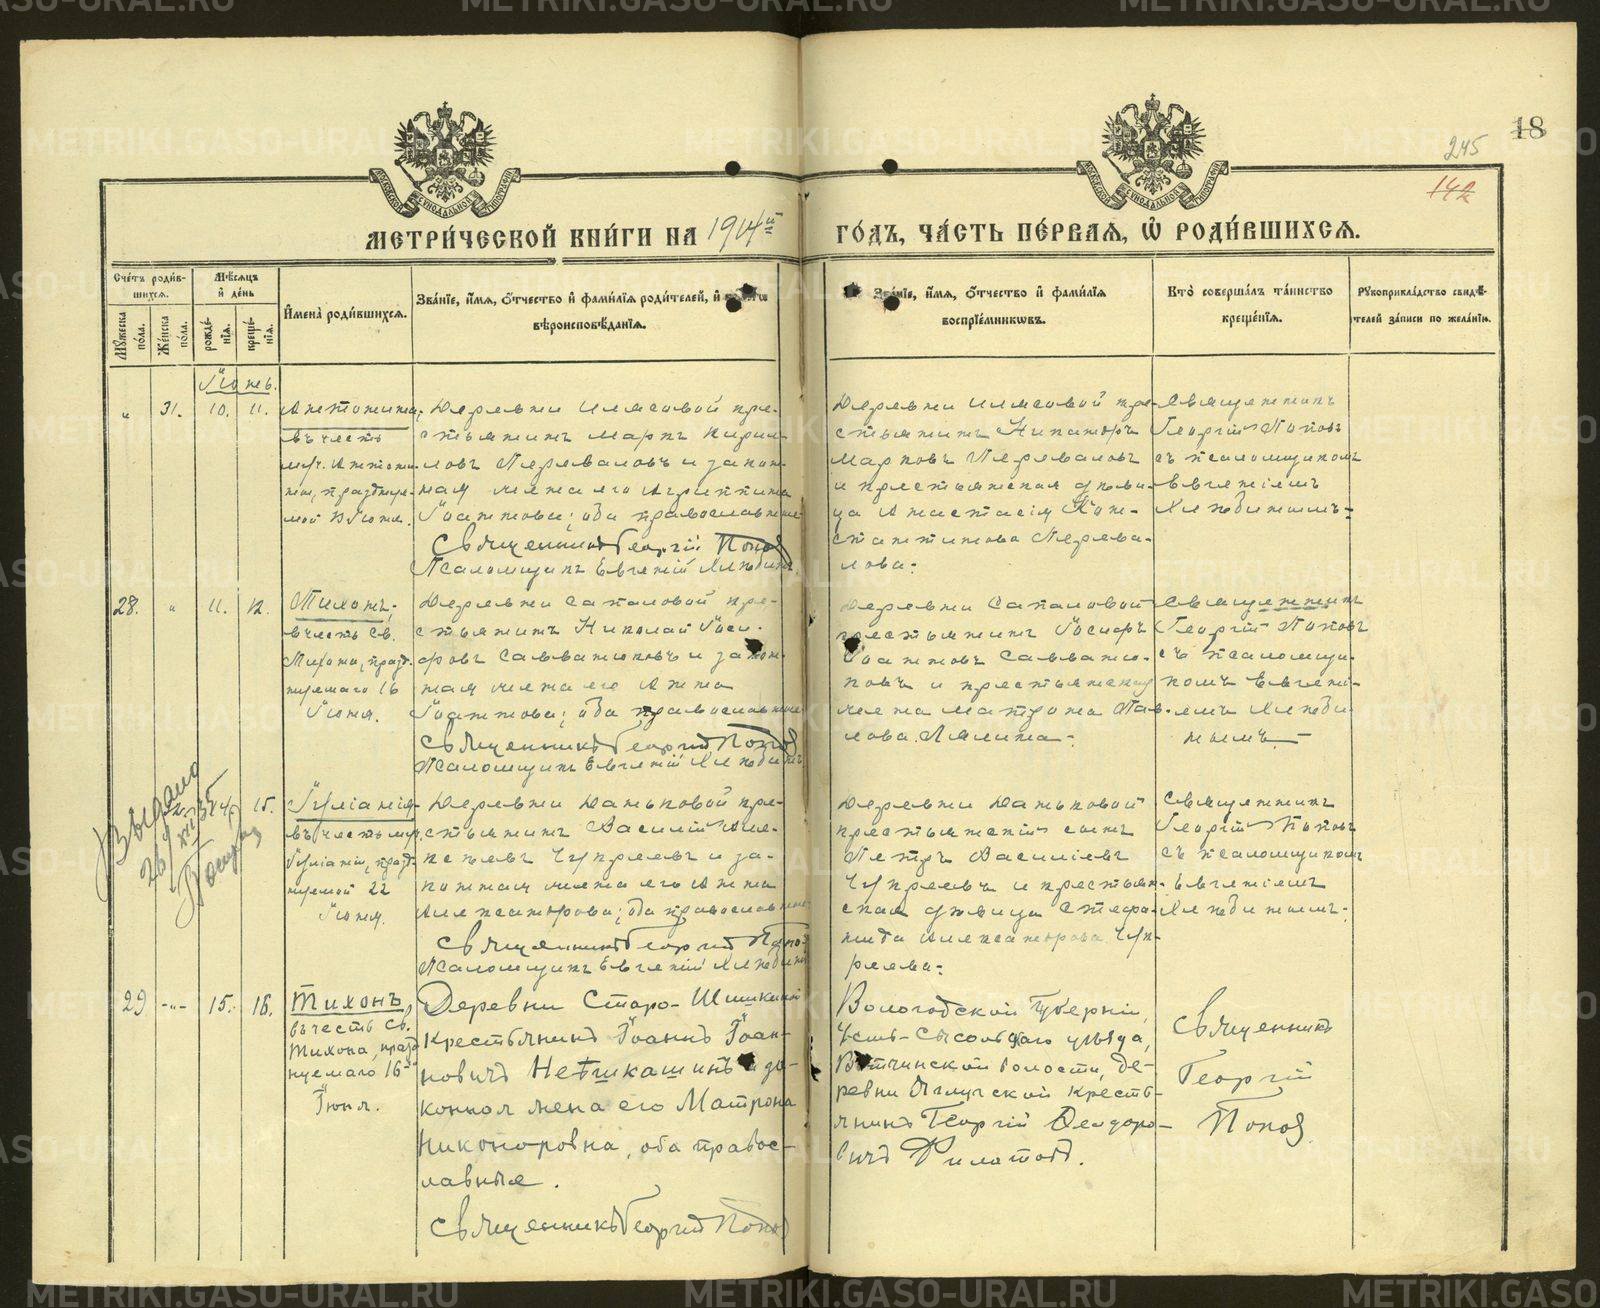 METRIKI.GASO-URAL.RU
18
245
142
МЕТРИ́ЧЕСКОЙ КНИ́ГИ НА 1914й ГО́ДЪ, ЧА́СТЬ ПЕ́РВАЯ, Ѡ҆ РОДИ́ВШИХСЯ.
Сче́тъ роди́в-
шихся.
Мѣ́сяцъ
и҆ де́нь
Мꙋ́жеска по́ла.
Же́нска по́ла.
рожде́-
нїѧ.
креще́-
нїѧ.
И҆мена̀ роди́вшихся.
Зва́нїе, и҆́мя, ѻ҆́тчество и҆ фами́лїя роди́телей, и҆
вѣроисповѣ́данїя.
Зва́нїе, и҆́мя, ѻ҆́тчество и҆ фами́лїя
воспрїе́мникѡвъ.
Кто̀ соверша́лъ та́инство
креще́нїя.
Рꙋкоприкла́дство свидѣ́-
телей за́писи по жела́нїю.
Іюнь.
" 31. 10. 11.
Антонина,
въ честь
муч. Антони-
ны, празднуе-
мой 13 Іюня.
Деревни Илясовой кре-
стьянинъ Маркъ Кирил-
ловъ Переваловъ и закон-
ная жена его Агриппина
Іоаннова; оба православные
Священникъ Георгій Поповъ
Псаломщикъ Евгеній Хлѣбинъ
Деревни Илясовой кре-
стьянинъ Никаноръ
Марковъ Переваловъ
и крестьянская дѣви-
ца Анастасія Кон-
стантинова Перева-
лова.
Священникъ
Георгій Поповъ
съ псаломщикомъ
Евгеніемъ
28. " 11. 12.
Тихонъ,
въ честь св.
Тихона, празд-
нуемаго 16
Іюня.
Деревни Сапаловой кре-
стьянинъ Николай Іоси-
фовъ Савватюковъ и закон-
ная жена его Анна
Іоаннова; оба православные
Священникъ Георгій Поповъ
Псаломщикъ Евгеній
Деревни Сапаловой
крестьянинъ Іосифъ
Іоанновъ Савватю-
ковъ и крестьянская
жена Матрона Пав-
лова Лялина.
Священникъ
Георгій Поповъ
съ псаломщи-
комъ Евгені-
емъ
Выдано
15.
Іуліанія,
въ честь муч.
Іуліаніи, празд-
нуемой 22
Іюня.
Деревни Даньковой кре-
стьянинъ Василій Але-
ксѣевъ Чупреевъ и за-
конная жена его Анна
Александрова; оба православные
Священникъ Георгій Поповъ
Псаломщикъ Евгеній
Деревни Даньковой
крестьянскій сынъ
Петръ Василіевъ
Чупреевъ и крестьян-
ская дѣвица Стефа-
нида Александрова Чуп-
реева.
Священникъ
Георгій Поповъ
съ псаломщикомъ
Евгеніемъ
29 -"- 15. 16.
Тихонъ,
въ честь св.
Тихона, празд-
нуемаго 16
Іюня.
Деревни Старо-Шишкиной
крестьянинъ Іоаннъ Іоан-
новичъ Нешкашинъ и за-
конная жена его Матрона
Никоноровна, оба правос-
лавные.
Священникъ Георгій Поповъ
Вологодской губерніи,
Усть-Сысольскаго уѣзда,
Вотчинской волости, де-
ревни кресть-
янинъ Георгій Ѳеодоро-
вичъ Филатовъ.
Священникъ
Георгій
Поповъ.